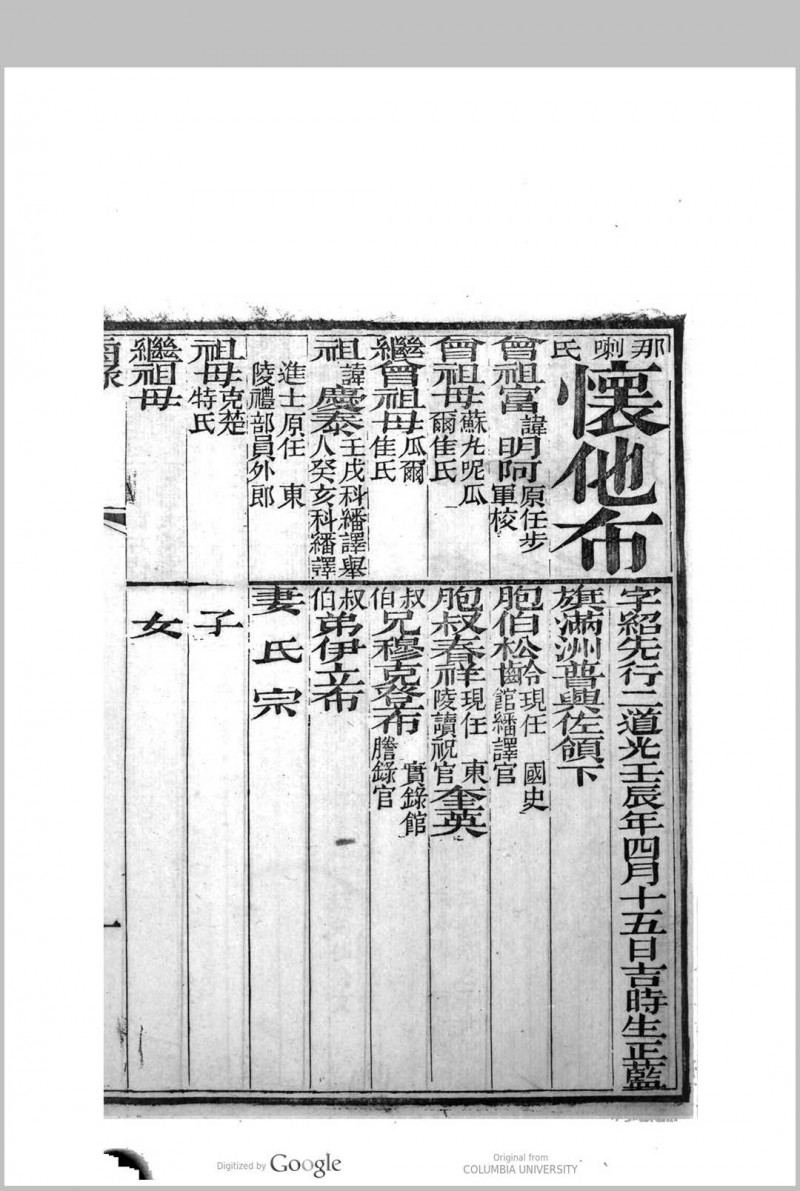 那喇氏
懷他布
曾祖諱富明阿原任步軍校
曾祖母蘇尢呢瓜爾隹氏
繼曾祖母瓜爾隹氏
祖諱慶泰壬戌科繙譯舉人癸亥科繙譯
進士原任東陵禮部員外郎
祖母克楚特氏
繼祖母
字紹先行二道光壬辰年四月十五日吉時生正藍
旗滿洲普興佐領下
胞伯松齡現任國史館繙譯官
胞叔春祥現任東陵讀祝官奎英
叔伯兄穆克登布實錄館謄錄官
叔伯弟伊立布
妻氏宗
子
女
一
Digitized by Google
Original from
COLUMBIA UNIVERSITY